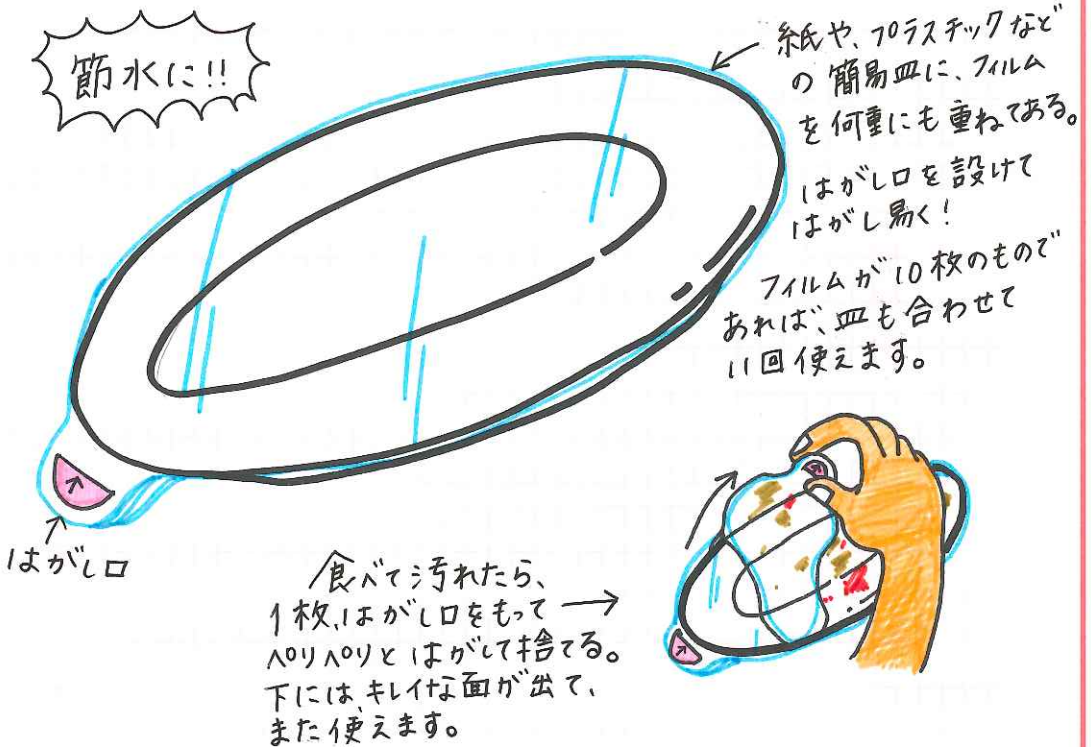 節水に!!
紙や、プラスチックなど
の簡易皿に、フィルム
を何重にも重ねてある。
はがし口を設けて
はがし易く!
フィルムが10枚のもので
あれば、皿も合わせて
11回使えます。
はがし口
食べて汚れたら、
1枚、はがし口をもって
ペリペリとはがして捨てる。
下には、キレイな面が出て、
また使えます。